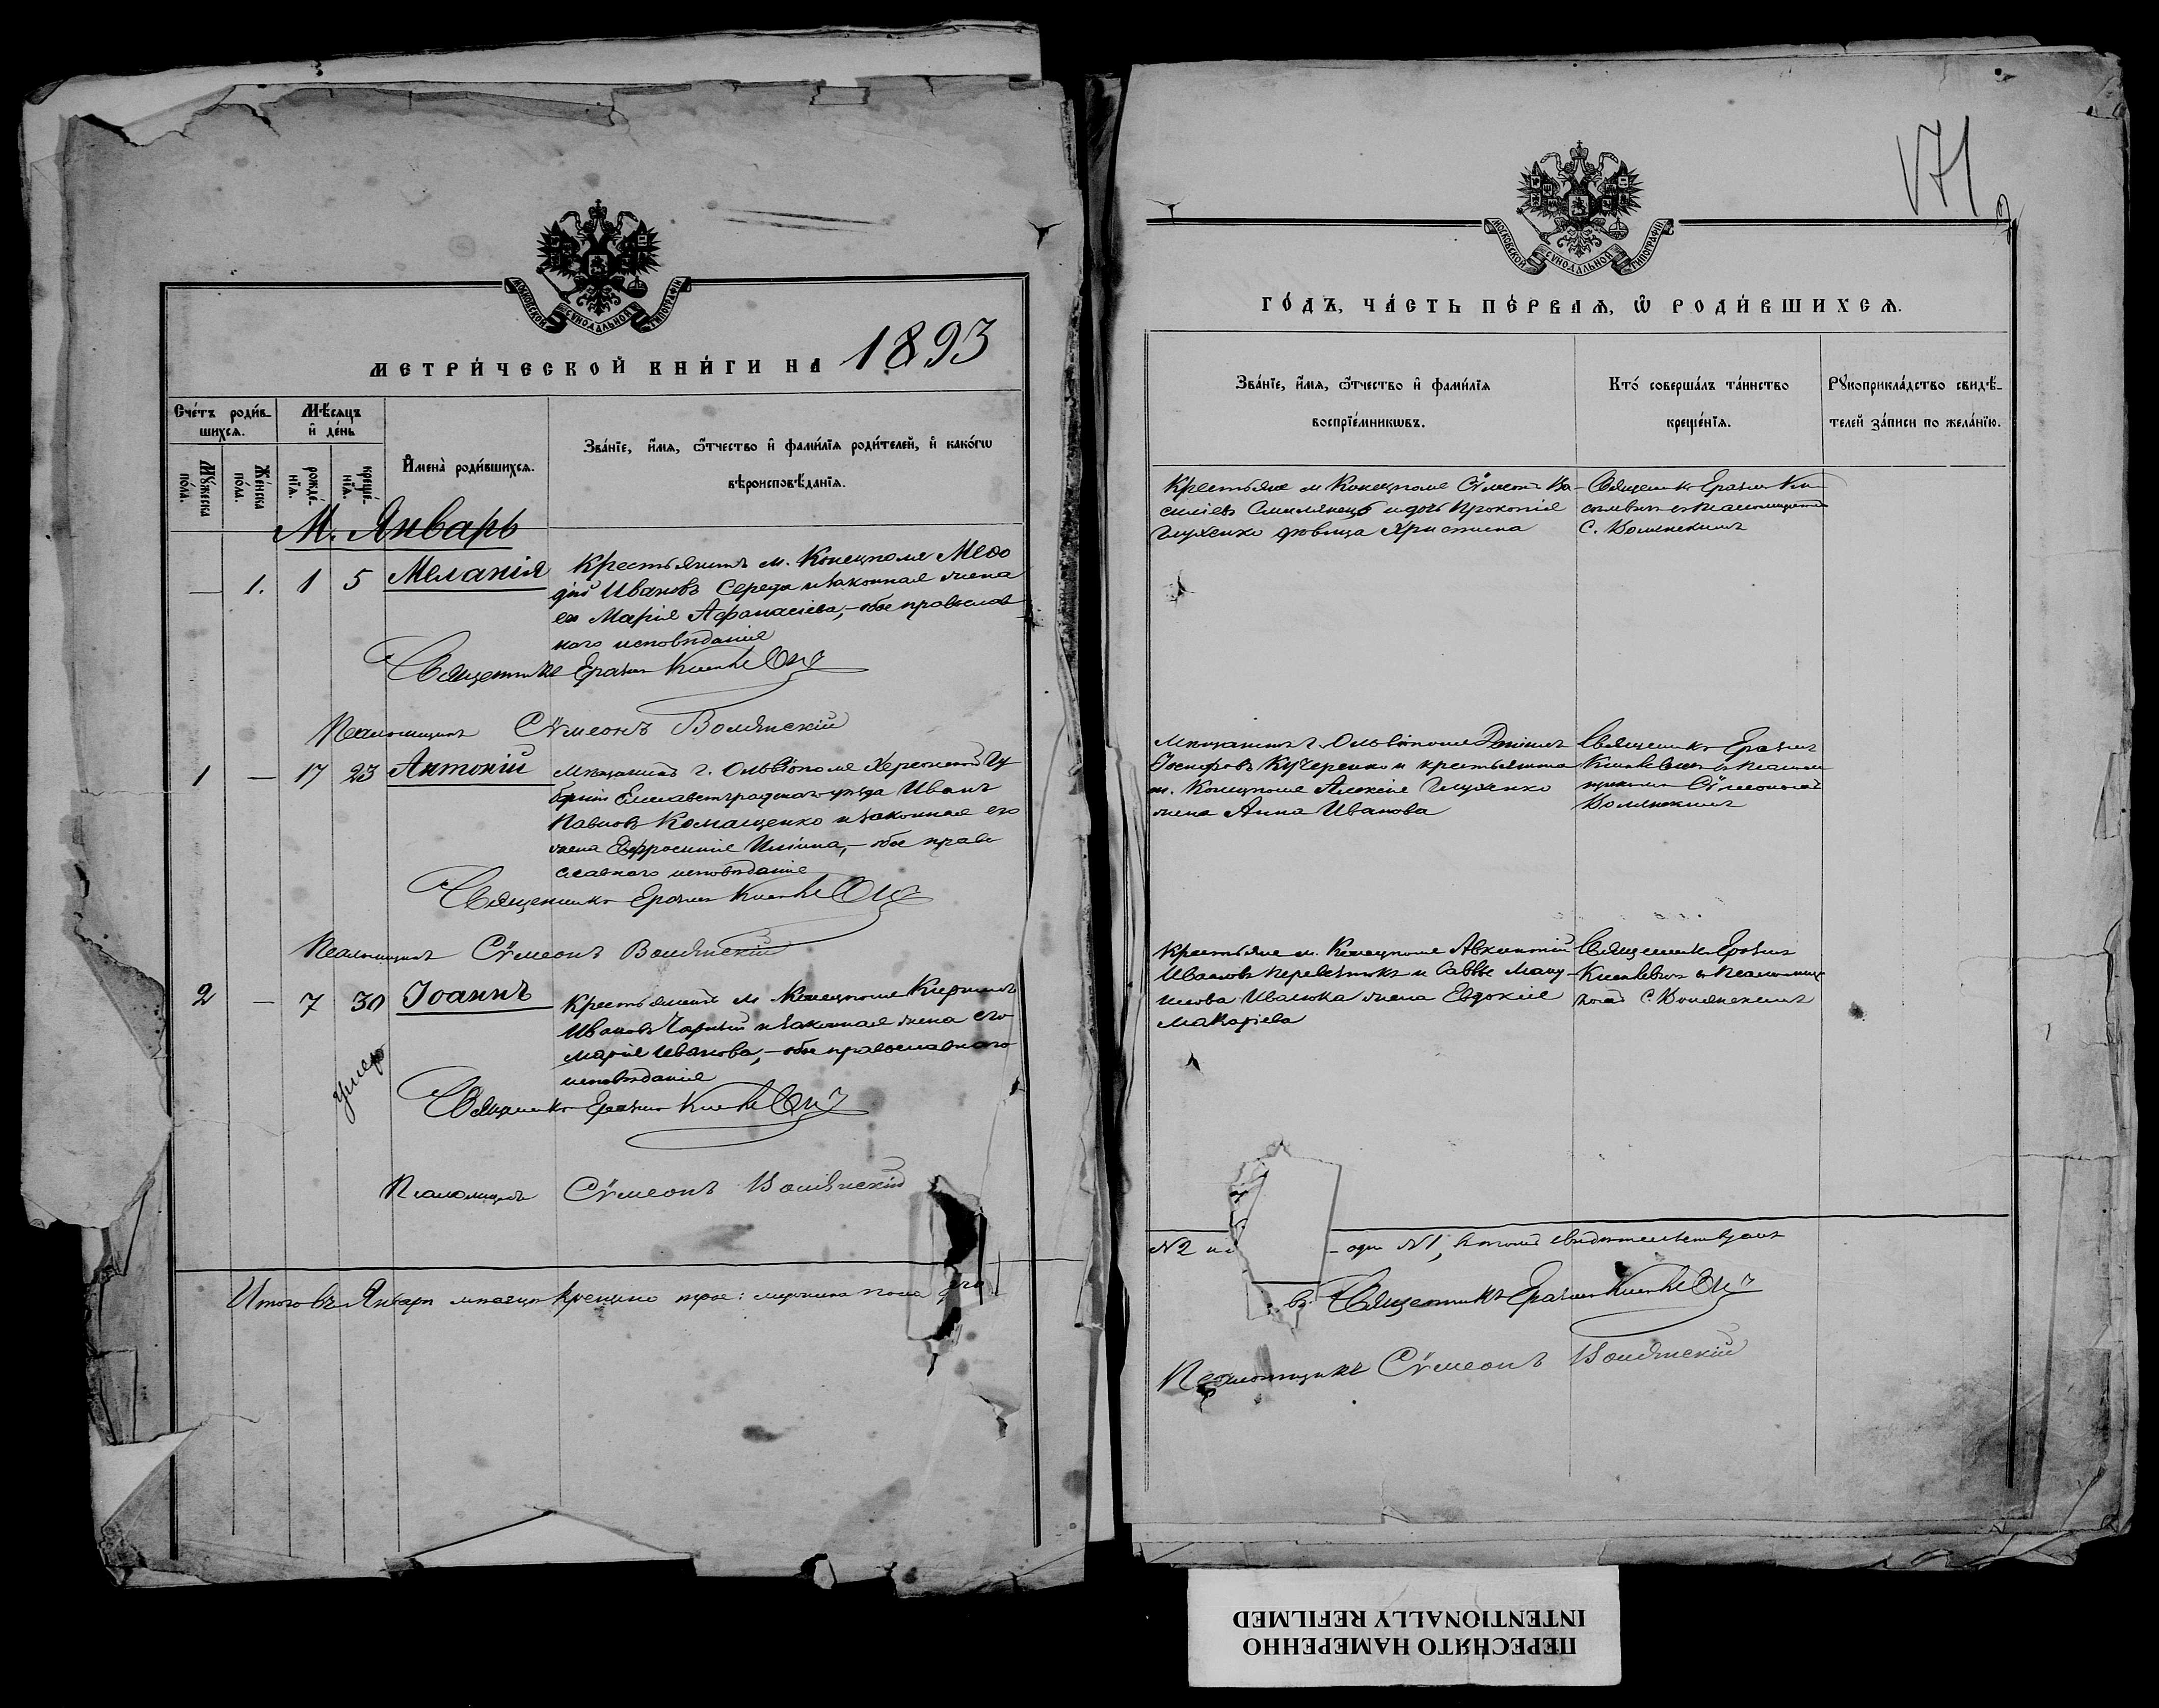 МОСКОВСКОЙ СѴНОДАЛЬНОЙ ТИПОГРАФІИ
МЕТРИ́ЧЕСКОЙ КНИ́ГИ НА 1893
Сче́тъ роди́в-
шихся.
Мѣ́сяцъ
и҆ де́нь
Мꙋ́жеска
по́ла.
Же́нска
по́ла.
рожде́-
нїя.
креще́-
нїя.
И҆мена̀ роди́вшихся.
Зва́нїе, и҆́мя, ѻ҆́тчество и҆ фами́лїя роди́телей, и҆ како́гѡ
вѣроисповѣ́данїя.
М. Январь
— 1. 1 5 Меланія
Крестьянинъ м. Конецполя Меѳо
дій Ивановъ Середа и законная жена
его Марія Афанасіева, – обое православ
наго исповѣданія
Священникъ
Псаломщикъ Сѵмеонъ Волянскій
1 — 17 23 Антоній
Мѣщанинъ г. Ольвіополя Херсонской Гу
берніи Елисаветградскаго уѣзда Иванъ
Павловъ Комащенко и законная его
жена Евфросинія Иліина, – обое право
славнаго исповѣданія
Священникъ
Псаломщикъ Сѵмеонъ Волянскій
2 — 7 30 Іоаннъ
умеръ
Крестьянинъ м Конецполя Кириллъ
Ивановъ Чорный и законная жена его
Марія Иванова, – обое православнаго
исповѣданія
Священникъ
Псаломщикъ Сѵмеонъ Волянскій
Итого въ Январѣ мѣсяцѣ крещено трое: мужеска пола
171
2
МОСКОВСКОЙ СѴНОДАЛЬНОЙ ТИПОГРАФІИ
ГО́ДЪ, ЧА́СТЬ ПЕ́РВАЯ, Ѡ҆ РОДИ́ВШИХСЯ.
Зва́нїе, и҆́мя, ѻ҆́тчество и҆ фами́лїя
воспрїе́мникѡвъ.
Кто́ соверша́лъ та́инство
креще́нїя.
Рꙋкоприкла́дство свидѣ́-
телей за́писи по жела́нїю.
Крестьяне м Конецполя Сѵмеонъ Ва-
силіевъ Смилянецъ и дочь Прокопія
Глущенко дѣвица Христина
Священникъ
С. Волянскимъ
Мѣщанинъ г. Ольвіополя Даніилъ
Іосифовъ Кучеренко и крестьянина
м. Конецполя Алексія Глущенко
жена Анна Иванова
Священникъ
Сѵмеономъ
Волянскимъ
Крестьяне м. Конецполя Авксентій
Ивановъ Перевезнюкъ и Саввы
Ивалюка жена Евдокія
Макаріева
Священникъ
С. Волянскимъ
№2
№1, въ томъ свидѣтельствуемъ
Священникъ
Псаломщикъ Сѵмеонъ Волянскій
ПЕРЕСНЯТО НАМЕРЕННО
INTENTIONALLY REFILMED